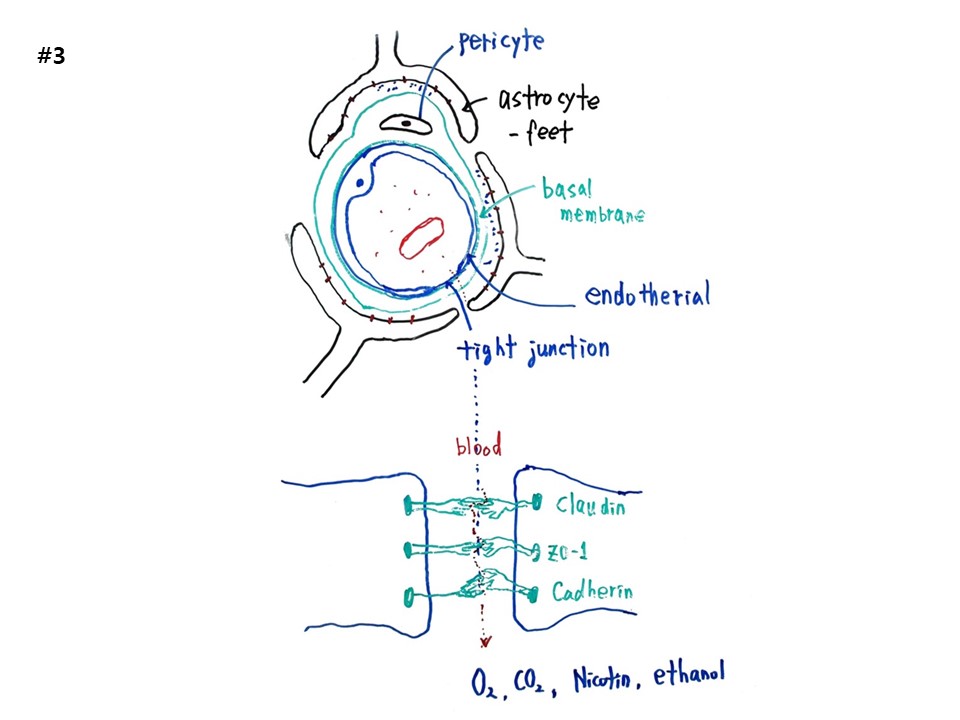 #3
pericyte
astrocyte
- feet
basal
membrane
endotherial
tight junction
blood
Claudin
ZO-1
Cadherin
O2, CO2, Nicotin, ethanol